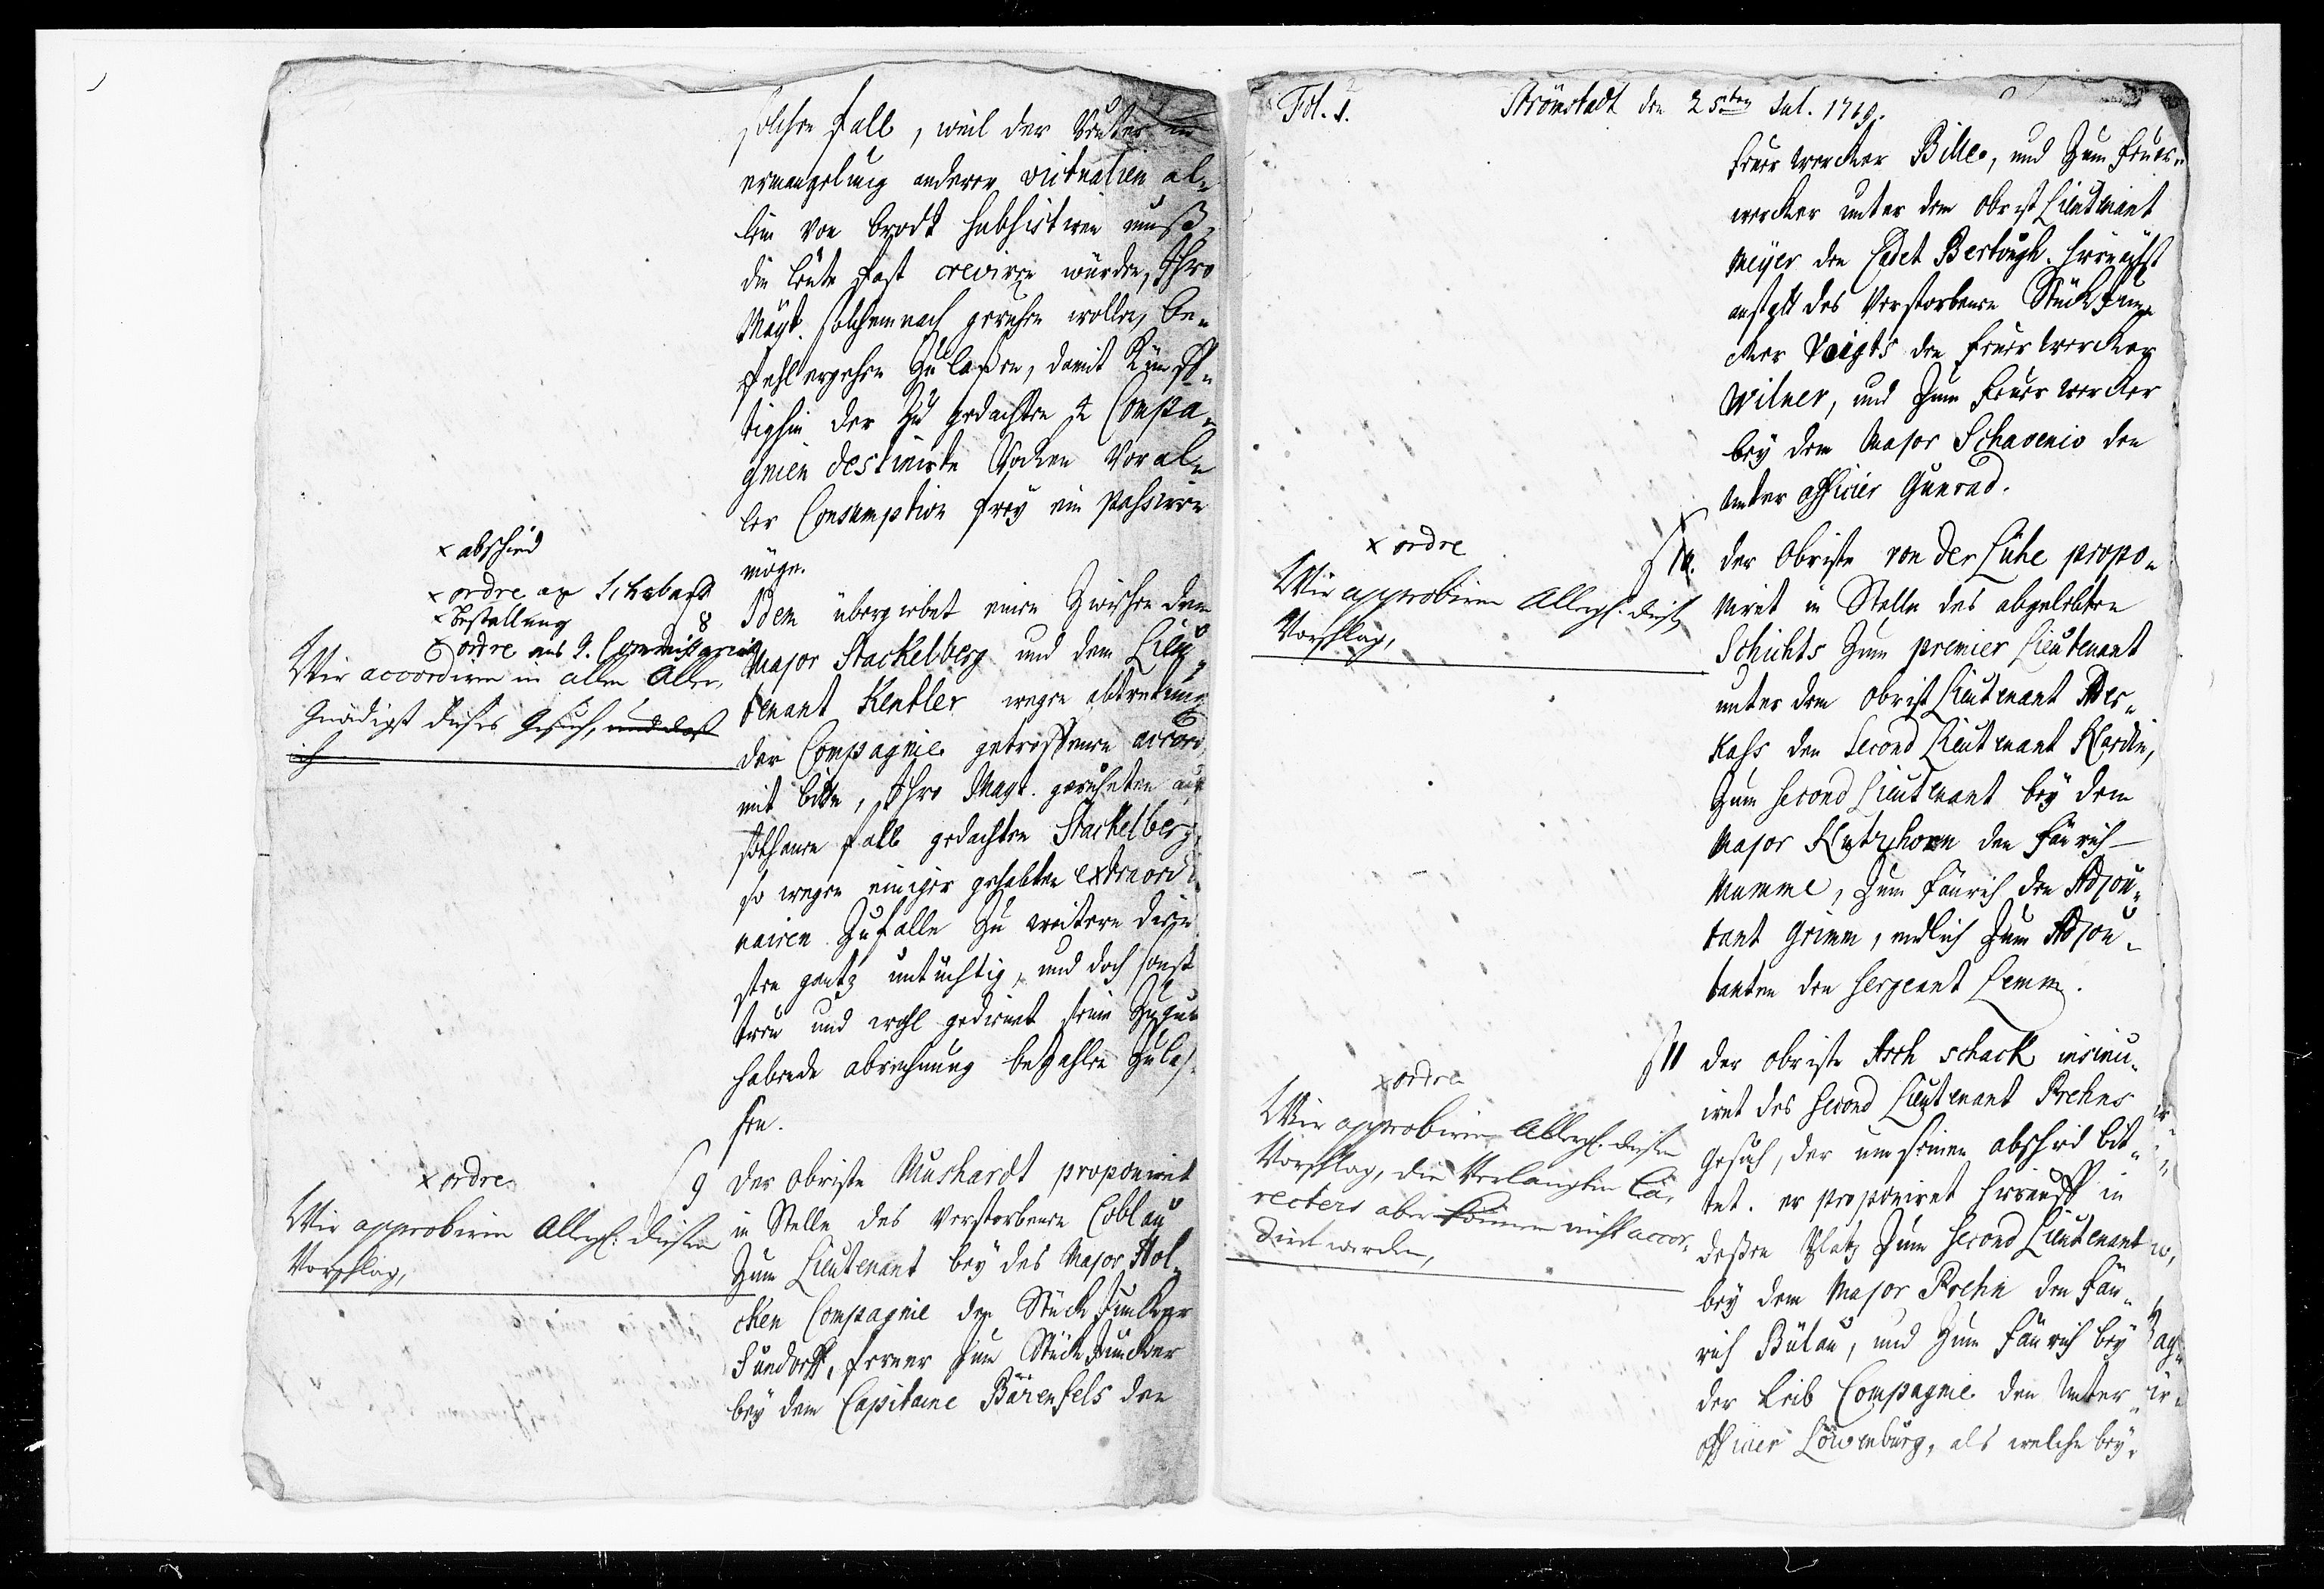 solchen fall, weil der Unter in
ermangelung anderer victualien al-
lein von brodt subsistiren muß,
die leute fast creviren würden, Ihro
Mayt. solchemnach geruhen wollen, be-
fehl ergehen zu laßen, damit künff-
tighin der zu gedachten 2 Compa-
gnien destinirte Rocken vor al-
ler Consumption frey ein passiren
möge.
x abschied
x ordre an Schabast
x bestellung
x ordre ans G. Commissariat
Wir accordiren in allen Aller-
Gnädigst dieses Gesuch, und daß
ich
8 Idem übergiebet einen zwischen dem
Major Stackelberg und dem Lieu-
tenant Kentler wegen abtretung
der Compagnie getroffenen accord,
mit bitte, Ihro Mayt. geruheten auf
solchenen fall gedachten Stackelberg,
so wegen einiger gehabten extraordi-
nairen Zufälle zu weitern dien-
sten gantz untüchtig, und doch sonst
treu und wohl gedienet seine Zugut
habende abrechnung bezahlen zu las-
sen.
x ordre
Wir approbiren Allergn: diesen
Vorschlag,
§ 9 der Obriste Mushardt proponiret
in Stelle des verstorbenen Coblau
zum Lieutenant bey des Major Hol-
cken Compagnie den Stück Juncker
Sundorff, ferner zum Stück Juncker
bey dem Capitaine Bärenfels den
Fol. 1.
Strömstadt den 25sten Jul. 1719.
feuerwercker Bille, und zum feuer-
wercker unter dem Obrist Lieutenant
Meyer den Cadet Bertough. hiernächst
anstatt des verstorbenen Stück Jun-
cker Voigts den feuerwercker
Wilner, und zum feuerwercker
bey dem Major Schavenio den
Unter officier Gunrad.
x ordre
Wir approbiren Allergn: diesen
Vorschlag,
§ 10. der Obriste von der Lühe propo-
niret in Stelle des abgelebten
Schichts zum premier Lieutenant
unter dem Obrist Lieutenant Ber-
kahs den Second Lieutenant Kardin,
zum Second Lieutenant bey dem
Major Klutzhorn den fänrich
Mumme, zum fänrich den Adjou-
tant Grimm, endlich zum Adjou-
tanten den Sergeant Lemm.
x ordre
Wir approbiren Allergn: diesen
Vorschlag, die Verlangten Ca-
recters aber können nicht accor-
dirt werden,
§ 11 der Obriste Asch Schack insinu-
iret des Second Lieutenant Prehns
gesuch, der um seinen abschied bit-
tet. er proponiret hierauff in
deßen Platz zum Second Lieutenant
bey dem Major Prehn den fän-
rich Bülau, und zum fänrich bey
der Leib Compagnie den Unter-
officier Löwenburg, als welche bey-